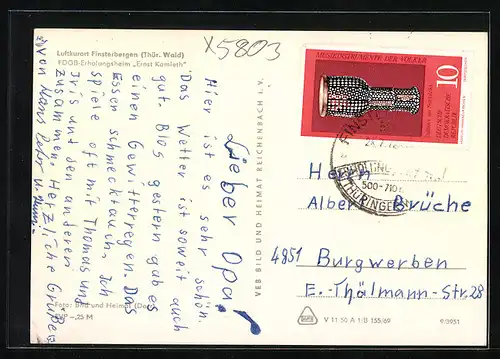 x5803
Luftkurort Finsterbergen (Thür. Wald)
FDGB-Erholungsheim „Ernst Kamieth"
Lieber Opa,
Hier ist es sehr schön.
Das Wetter ist soweit auch
gut. Blos gestern gab es
einen Gewitterregen. Das
Essen schmeckt auch. Ich
spiele oft mit Thomas und
Iris und den anderen
zusammen. Herzliche Grüße
von Hans Peter u.
Foto: Bild und Heimat
EVP -,25 M
VEB BILD UND HEIMAT REICHENBACH i. V.
MUSIKINSTRUMENTE DER VÖLKER
10
DEUTSCHE
DEMOKRATISCHE
REPUBLIK
FINST
500-710
THÜRINGEN
Herrn
Albert Brüche
4851 Burgwerben
E.-Thälmann-Str. 28
V 11 50 A 1/B 155/69
9/3951